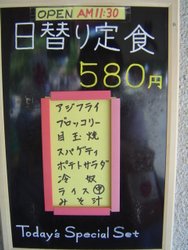 OPEN AM11:30
日替り定食
580円
アジフライ
ブロッコリー
目玉焼
スパゲティ
ポテトサラダ
冷奴
ライス㊥
みそ汁
Today's Special Set